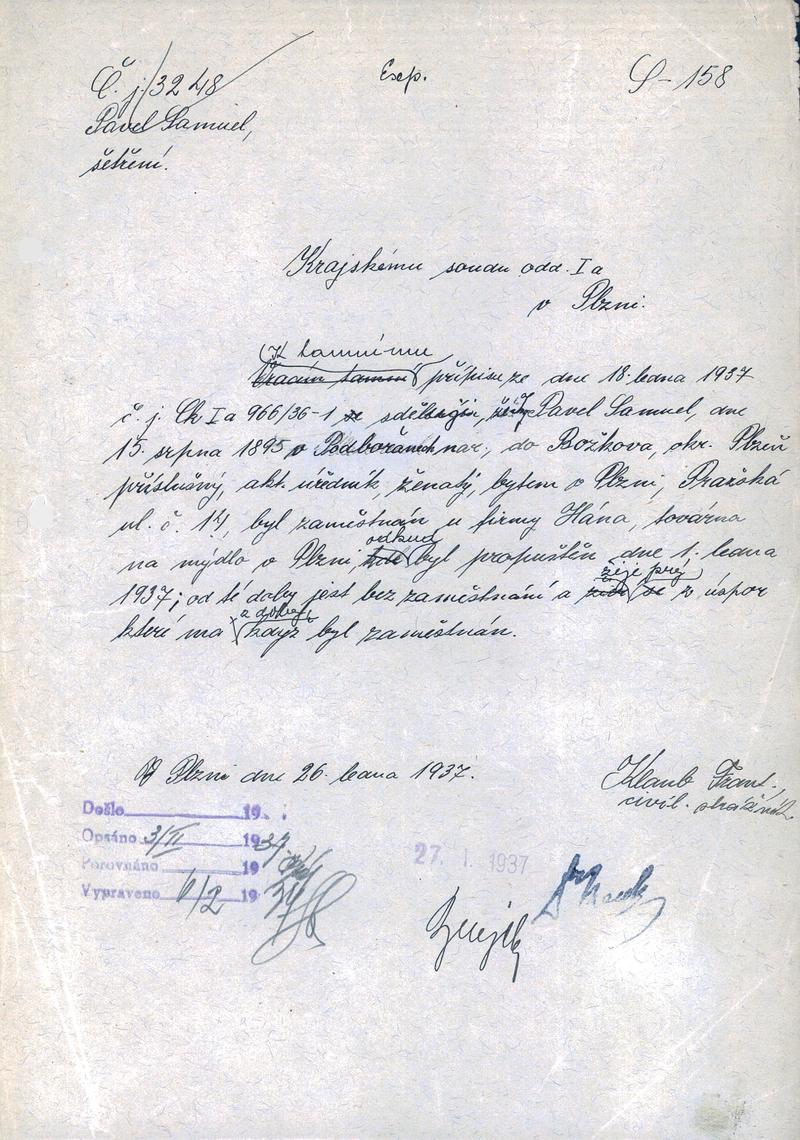 Č. j. 3248
Exp.
S-158
Pavel Samuel,
šetření.
Krajskému soudu odd. I a
v Plzni.
K tamnímu
Vracím tamní přípisu ze dne 18. ledna 1937
č. j. Ck I a 966/36-1 Pavel Samuel, dne
15. srpna 1895 v Podbořanech nar., do Božkova, okr. Plzeň
příslušný, akt. úředník, ženatý, bytem v Plzni, Pražská
ul. č. 14, byl zaměstnán u firmy Hána, továrna
odkud
na mýdlo v Plzni kde byl propuštěn dne 1. ledna
žije prý
1937; od té doby jest bez zaměstnání a se z úspor
z doby,
které má když byl zaměstnán.
V Plzni dne 26. ledna 1937.
Klaub Frant.,
civil. strážník
Došlo 19
Opsáno 3/II 1937
Porovnáno 19
Vypraveno 6/2 19
27. I. 1937